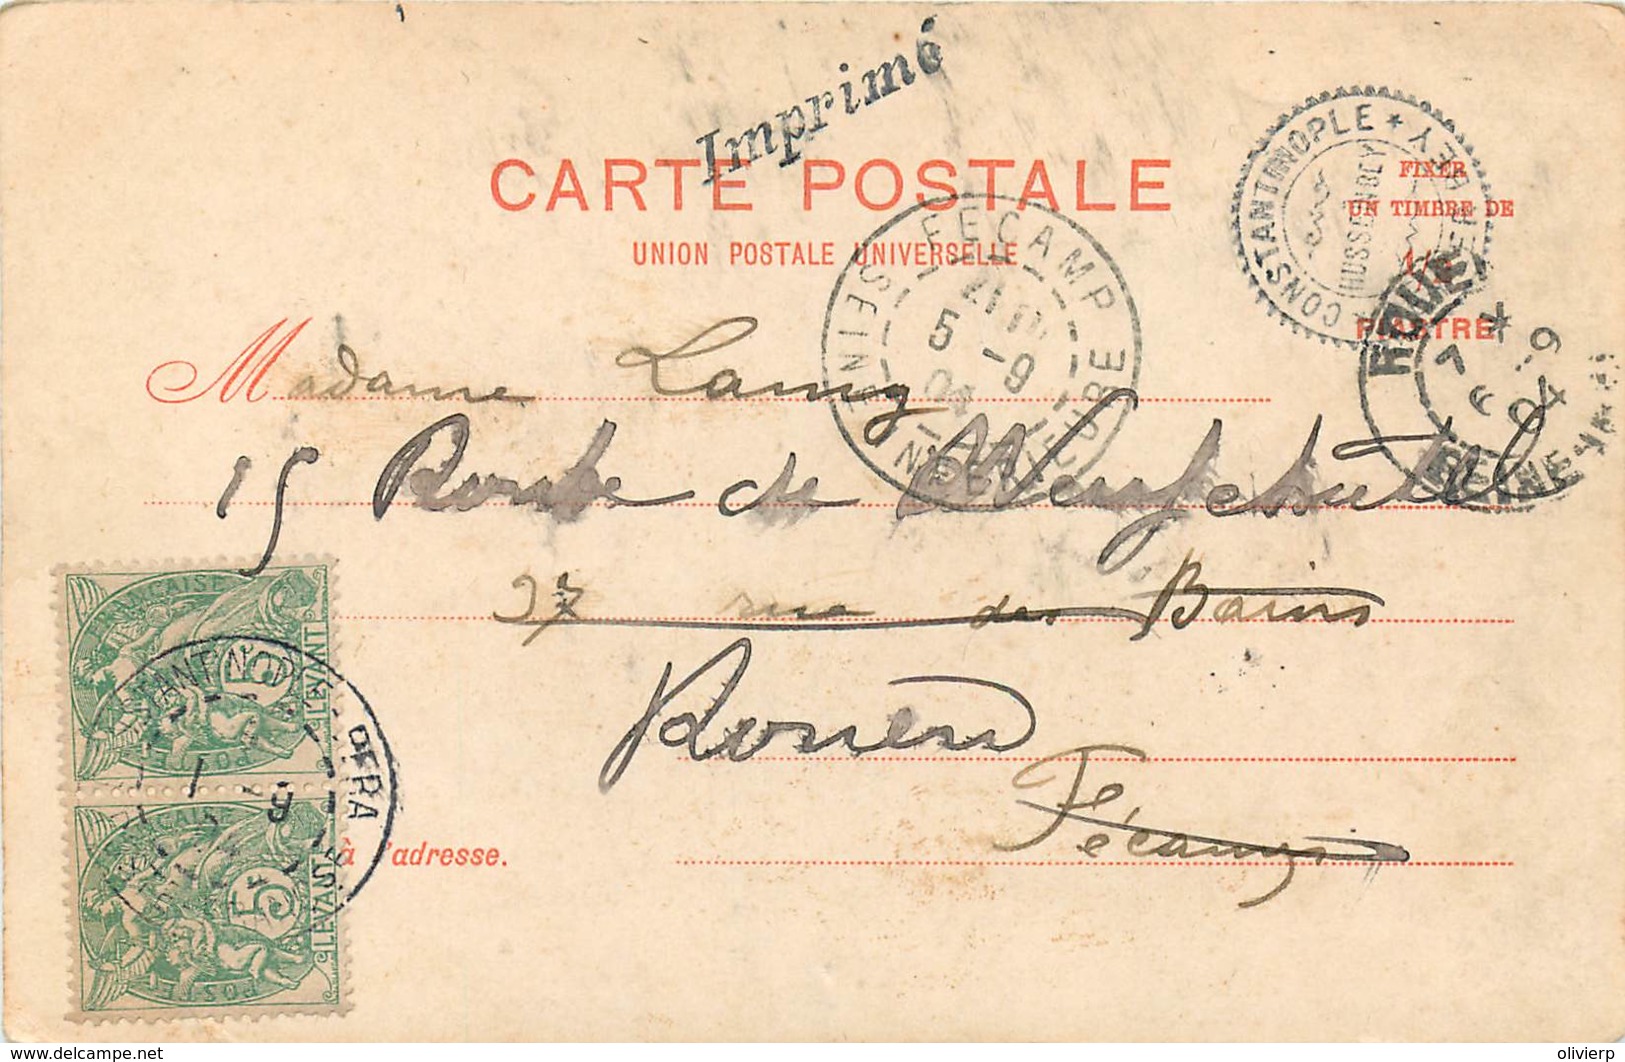 Imprimé
CARTE POSTALE
UNION POSTALE UNIVERSELLE
FIXER
UN TIMBRE DE
PIASTRE
CONSTANTINOPLE * * BEY
HUSSEIN BEY
FECAMP
SEINE INFERIEURE
5 -9
04
ROUEN
7 *
6 -9
04
Madame Lamy
15 Route de Neufchatel
37 rue des Bains
Rouen
Fécamp
à l'adresse.
FRANÇAISE
5
LEVANT
POSTES
FRANÇAISE
5
LEVANT
POSTES
CONSTANTINOPLE PERA
1 -9
www.delcampe.net
olivierp